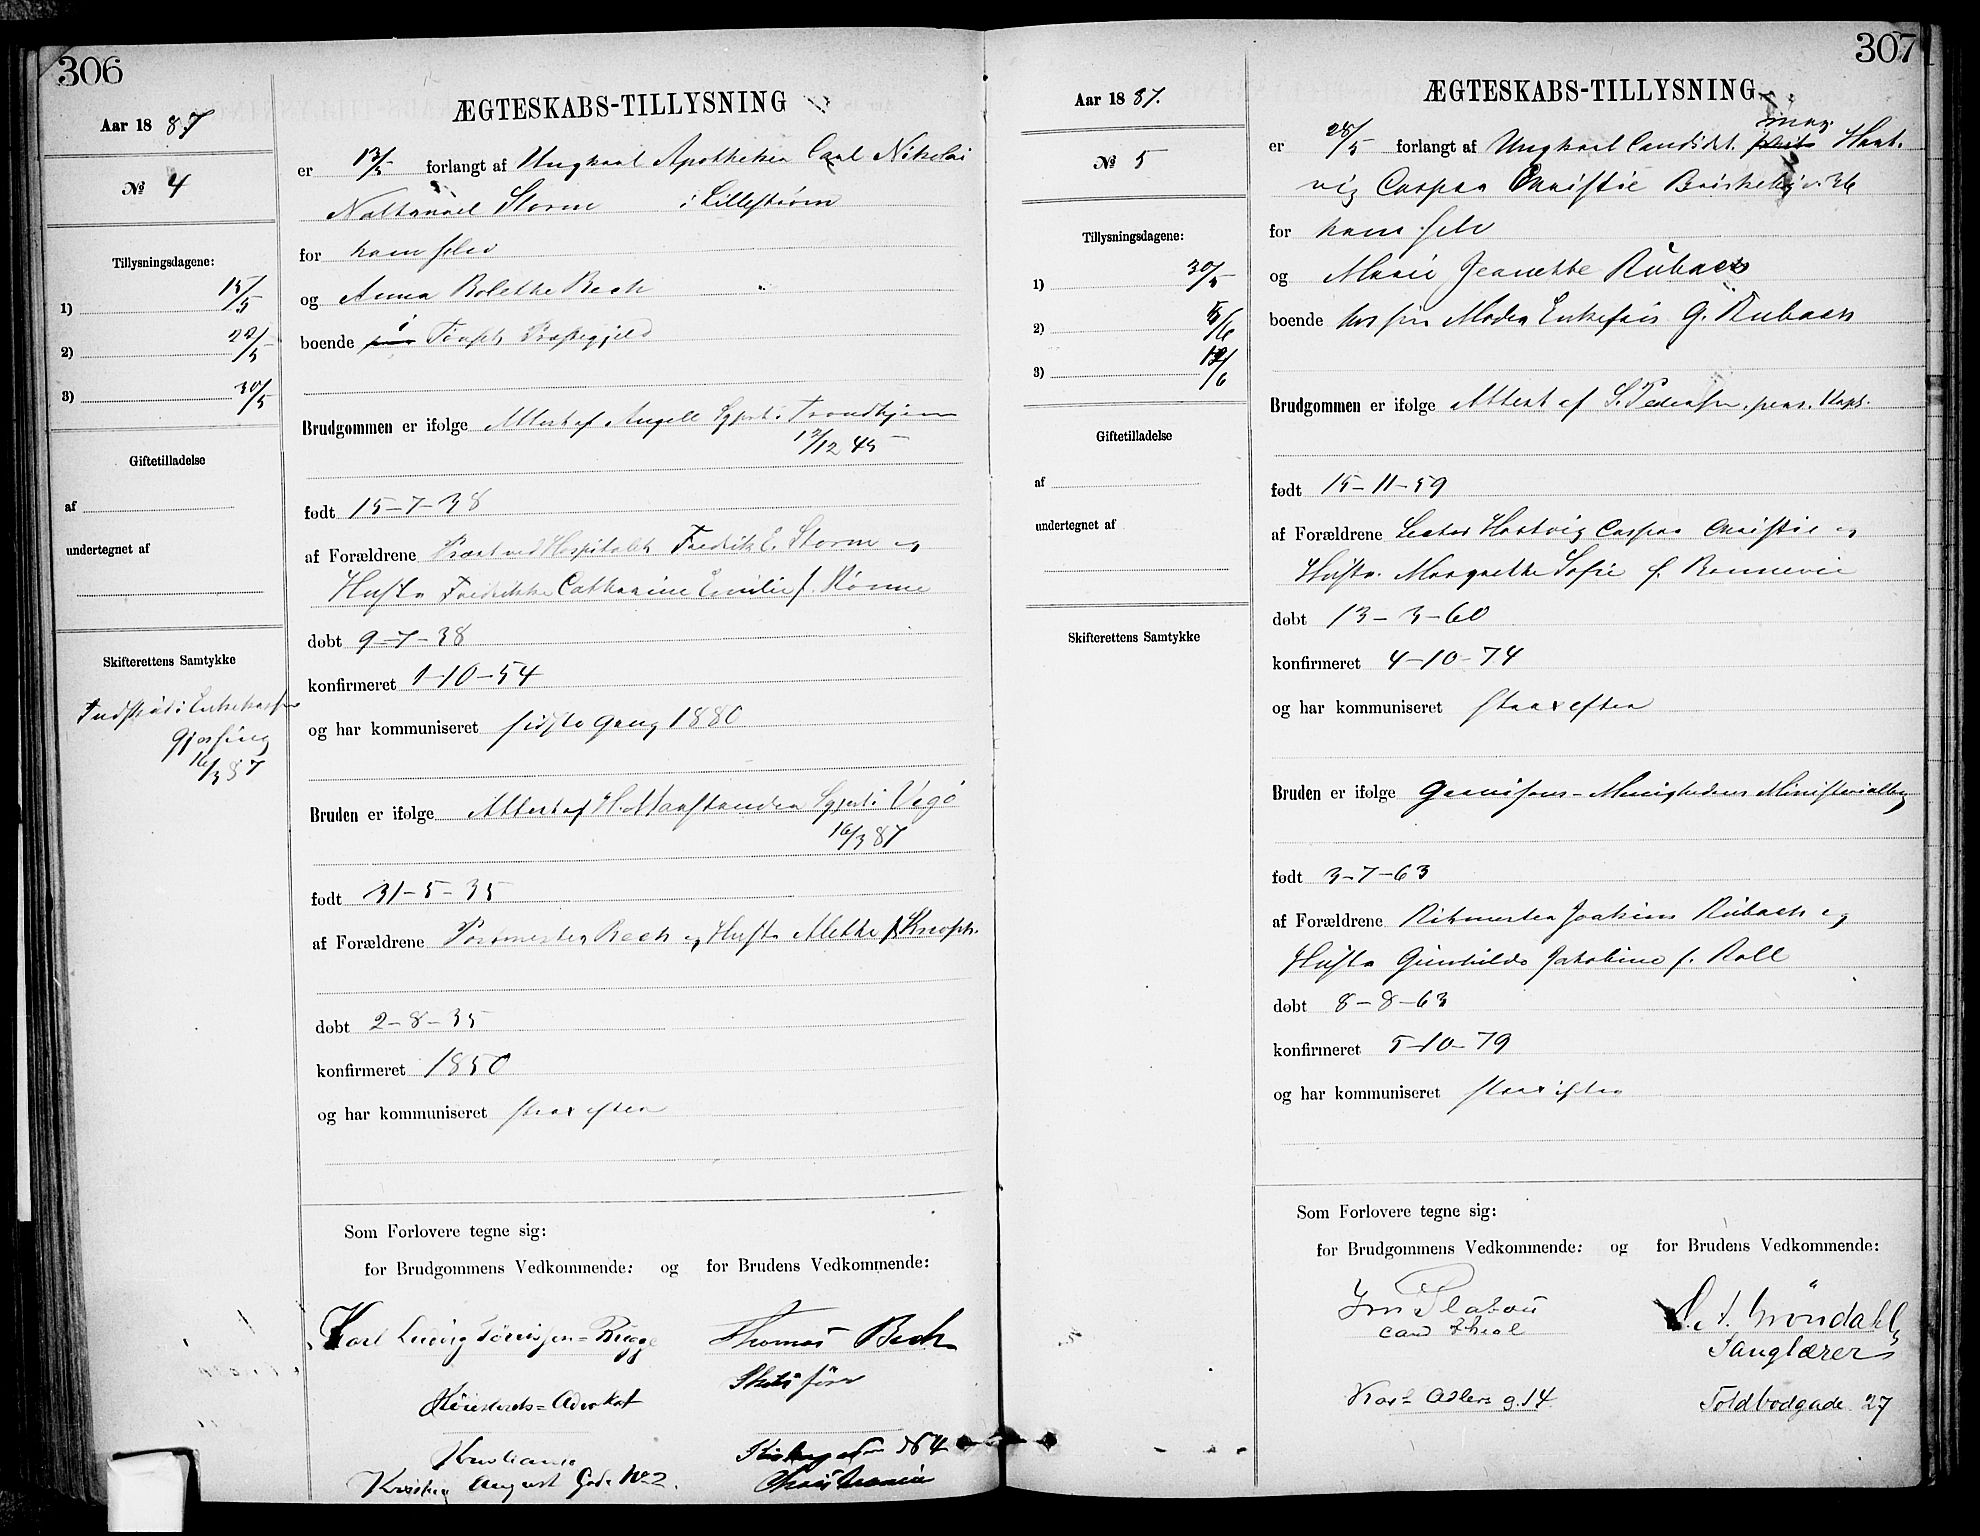 306
Aar 1887
ÆGTESKABS-TILLYSNING
№ 4
er 13/5 forlangt af Ungkarl Apotheker Carl Nikolai
Nathanael Storm i Lillestrøm
Tillysningsdagene:
for ham selv
1) 15/5
og Anna Bolethe Bech
2) 22/5
boende i Præstegjeld
3) 30/5
Brudgommen er ifølge Attest af Angell Sgprst i Trondhjem
12/12 45
Giftetilladelse
af
født 15-7-38
undertegnet af
af Forældrene Præst ved Hospitalet Fredrik E. Storm og
Hustru Fredrikke Catharine Emilie f. Rønne
døbt 9-7-38
Skifterettens Samtykke
konfirmeret 1-10-54
Indskud i Enkekassen
16/3 87
og har kommuniseret sidste Gang 1880
Bruden er ifølge Attest af Sgprst i Vegø
16/3 87
født 31-5-35
af Forældrene Postmester Bech og Hustru Mette f.
døbt 2-8-35
konfirmeret 1850
og har kommuniseret strax efter
Som Forlovere tegne sig:
for Brudgommens Vedkommende: og for Brudens Vedkommende:
Karl Ludvig Tørrissen=Bugge Thomas Bech
Høiesterets=Advokat
Kristiania
Kristian August Gade № 2. Christiania
307
Aar 1887.
ÆGTESKABS-TILLYSNING
№ 5
er 28/5 forlangt af Ungkarl Candidat mag. Hart-
vig Caspar Christie Briskebyv. 36
Tillysningsdagene:
for ham selv
1) 30/5
og Marie Jeanette Rubach
2) 5/6
boende hos sin Moder Enkefru G. Rubach
3) 12/6
Brudgommen er ifølge Attest af S. Pedersen, pers. Kap.
Giftetilladelse
af
født 15-11-59
undertegnet af
af Forældrene Lector Hartvig Caspar Christie og
Hustru Margrethe Sofie f. Bonnevie
døbt 13-3-60
Skifterettens Samtykke
konfirmeret 4-10-74
og har kommuniseret strax efter
Bruden er ifølge Garnisons-Menighedens Ministerialbog
født 3-7-63
af Forældrene Ritmester Joakim Rubach og
Hustru Gunhilde Jakobine f. Roll
døbt 8-8-63
konfirmeret 5-10-79
og har kommuniseret strax efter
Som Forlovere tegne sig:
for Brudgommens Vedkommende: og for Brudens Vedkommende:
Platou A. Grøndahl
cand. theol Sanglærer
Karl Adlers g. 14 Toldbodgade 27